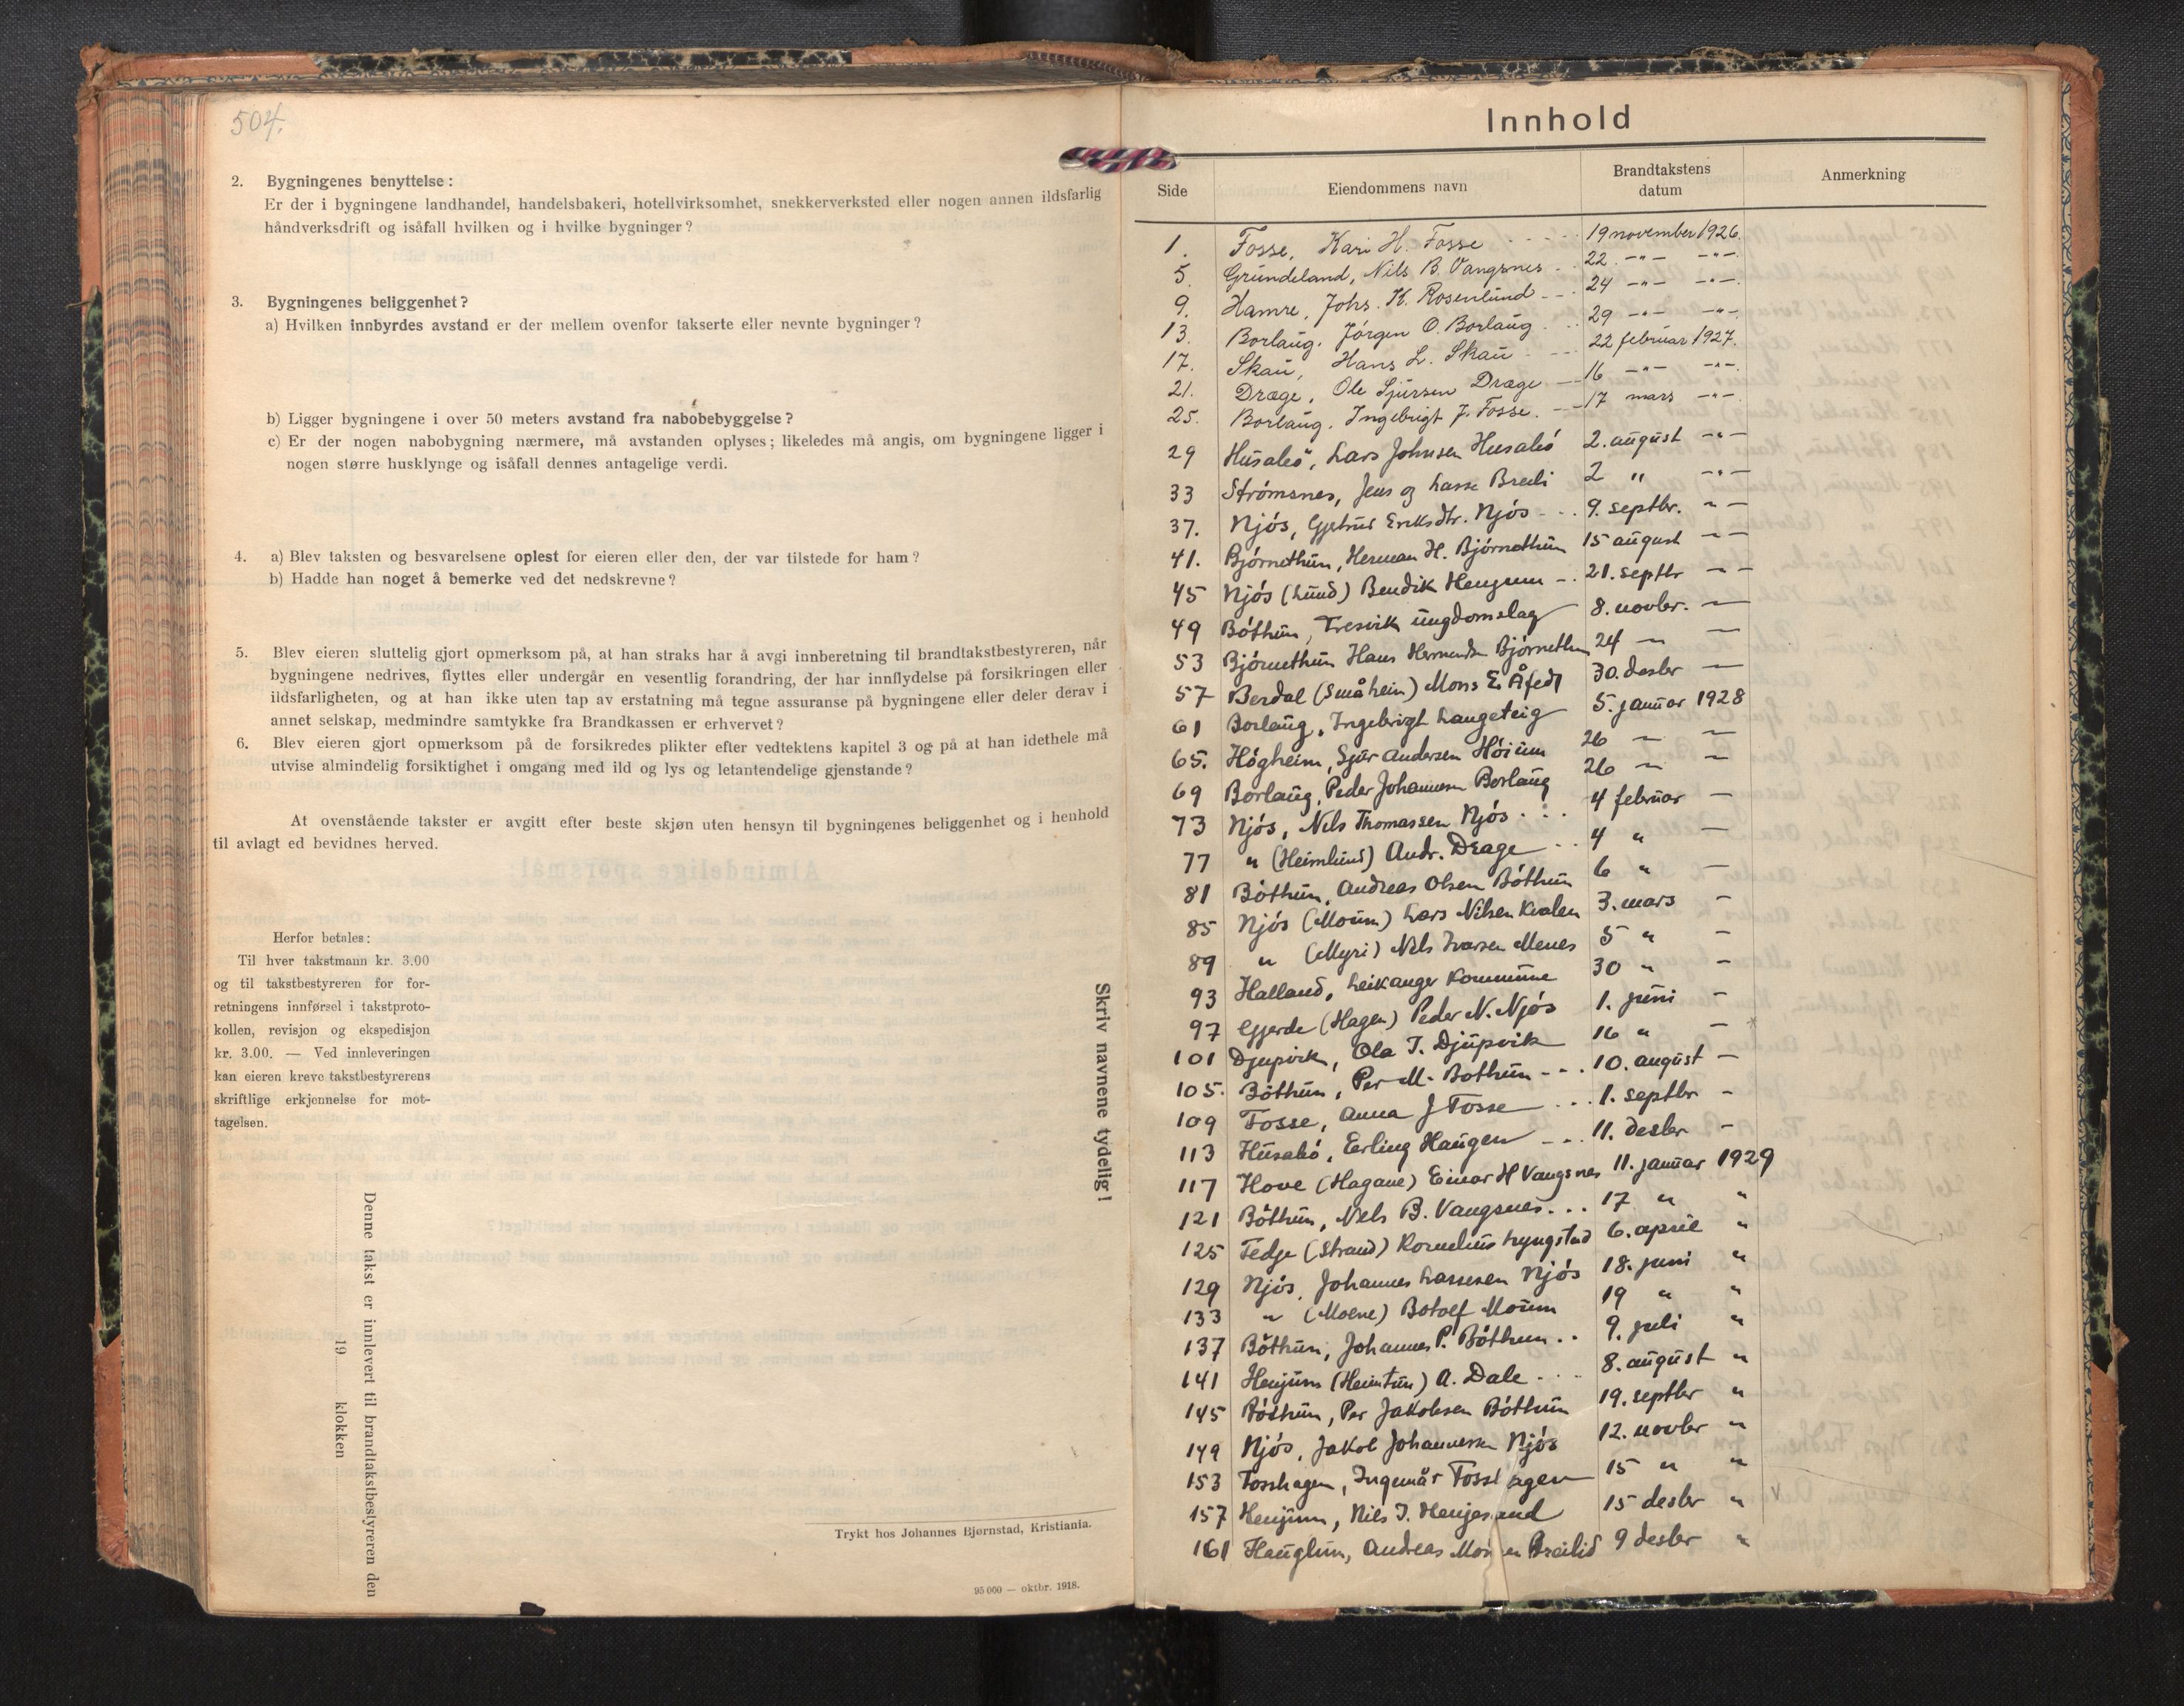 504.
2. Bygningenes benyttelse:
Er der i bygningene landhandel, handelsbakeri, hotellvirksomhet, snekkerverksted eller nogen annen ildsfarlig
håndverksdrift og isåfall hvilken og i hvilke bygninger?
3. Bygningenes beliggenhet?
a) Hvilken innbyrdes avstand er der mellem ovenfor takserte eller nevnte bygninger?
b) Ligger bygningene i over 50 meters avstand fra nabobebyggelse?
c) Er der nogen nabobygning nærmere, må avstanden oplyses; likeledes må angis, om bygningene ligger i
nogen større husklynge og isåfall dennes antagelige verdi.
4. a) Blev taksten og besvarelsene oplest for eieren eller den, der var tilstede for ham?
b) Hadde han noget å bemerke ved det nedskrevne?
5. Blev eieren sluttelig gjort opmerksom på, at han straks har å avgi innberetning til brandtakstbestyreren, når
bygningene nedrives, flyttes eller undergår en vesentlig forandring, der har innflydelse på forsikringen eller
ildsfarligheten, og at han ikke uten tap av erstatning må tegne assuranse på bygningene eller deler derav i
annet selskap, medmindre samtykke fra Brandkassen er erhvervet?
6. Blev eieren gjort opmerksom på de forsikredes plikter efter vedtektens kapitel 3 og på at han idethele må
utvise almindelig forsiktighet i omgang med ild og lys og letantendelige gjenstande?
At ovenstående takster er avgitt efter beste skjøn uten hensyn til bygningenes beliggenhet og i henhold
til avlagt ed bevidnes herved.
Herfor betales:
Til hver takstmann kr. 3.00
og til takstbestyreren for for-
retningens innførsel i takstproto-
kollen, revisjon og ekspedisjon
kr. 3.00. — Ved innleveringen
kan eieren kreve takstbestyrerens
skriftlige erkjennelse for mot-
tagelsen.
Denne takst er innlevert til brandtakstbestyreren den
19 klokken
Skriv navnene tydelig!
Trykt hos Johannes Bjørnstad, Kristiania.
95 000 — oktbr. 1918.
Innhold
Side Eiendommens navn Brandtakstens datum Anmerkning
1. Fosse, Kari H. Fosse 19 november 1926.
5. Grundeland, Nils B. Vangsnes 22 -"- -"-
9. Hamre, Johs. K. Rosenlund 24 -"- -"-
13. Borlaug, Jørgen O. Borlaug 29 -"- -"-
17. Skau, Hans L. Skau 22 februar 1927.
21. Dræge, Ole Sjursen Dræge 16 -"- -"-
25. Borlaug, Ingebrigt J. Fosse. 17 mars -"-
29 Husabø, Lars Johnsen Husabø 2. august -"-
33 Strømsnes, Jens og Lasse Breili 2 " -"-
37. Njøs, Gjertrud Eriksdtr. Njøs 9. septbr. " -
41. Bjørnethun, Herman H. Bjørnethun 15 august " -
45 Njøs (Lund) Bendik Henjum 21. septbr - -
49 Bøthun, Fresvik ungdomslag 8. novbr. -
53 Bjørnethun Hans Hermundsn Bjørnethun 24 - -
57 Berdal (Småheim) Mons E. Åfedt 30. desbr -
61 Borlaug, Ingebrigt Langeteig 5. januar 1928
65. Høgheim, Sjur Andersen Høium 26 - -
69 Borlaug, Peder Johannesen Borlaug 26 - -
73 Njøs, Nils Thomassen Njøs 4 februar -
77 " (Heimlund) Andr. Drage 4 " -
81 Bøthun, Andreas Olsen Bøthun 6 " -
85 Njøs (Moum) Lars Nilsen Kvalen 3. mars -
89 " (Myri) Nils Ivarsen Menes 5 " -
93 Halland, Leikanger Kommune 30 " -
97 Gjerde (Hagen) Peder N. Njøs 1. juni -
101 Djupvik, Ola T. Djupvik 16 " -
105. Bøthun, Per M. Bøthun 10. august -
109 Fosse, Anna J Fosse 1. septbr -
113 Husabø, Erling Haugen 11. desbr -
117 Hove (Hagane) Einar H Vangsnes 11. januar 1929
121 Bøthun, Nils B. Vangsnes 17 " "
125 Fedje (Strand) Kornelius Lyngstad 6. april "
129 Njøs, Johannes Larssen Njøs 18. juni "
133 " (Moene) Botolf Moum 19 " "
137 Bøthun, Johannes P. Bøthun 9. juli "
141 Henjum (Heimtun) A. Dale 8. august "
145 Bøthun, Per Jakobsen Bøthun 19. septbr "
149 Njøs, Jakob Johannesen Njøs 12. novbr "
153 Fosshagen, Ingemår Fosshagen 15 " "
157 Henjum, Nils I. Henjesand 15 desbr " v
161 Hauglum, Andreas Monsen Breilid 9 desbr "